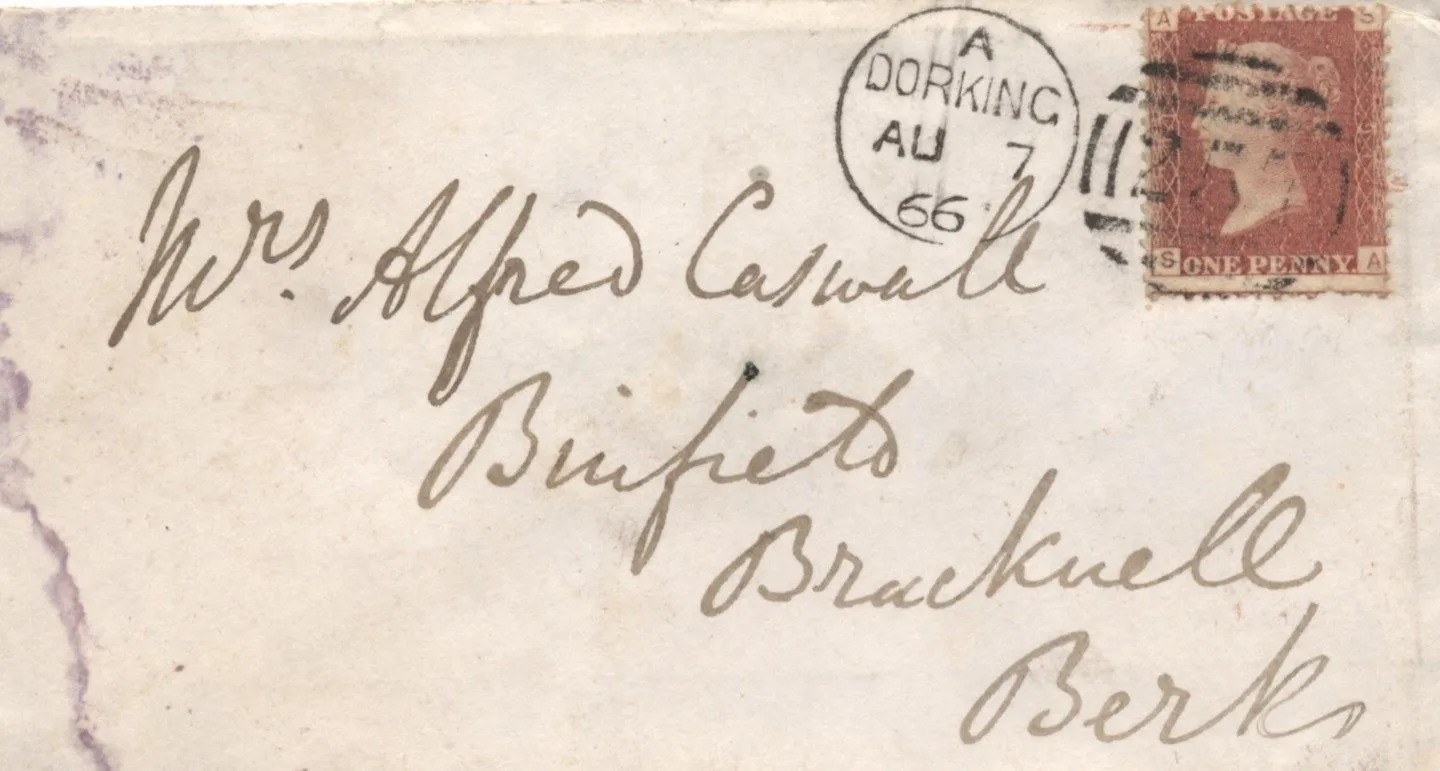 A
DORKING
AU 7
66
A POSTAGE S
S ONE PENNY A
Mrs. Alfred Caswall
Binfield
Bracknell
Berks